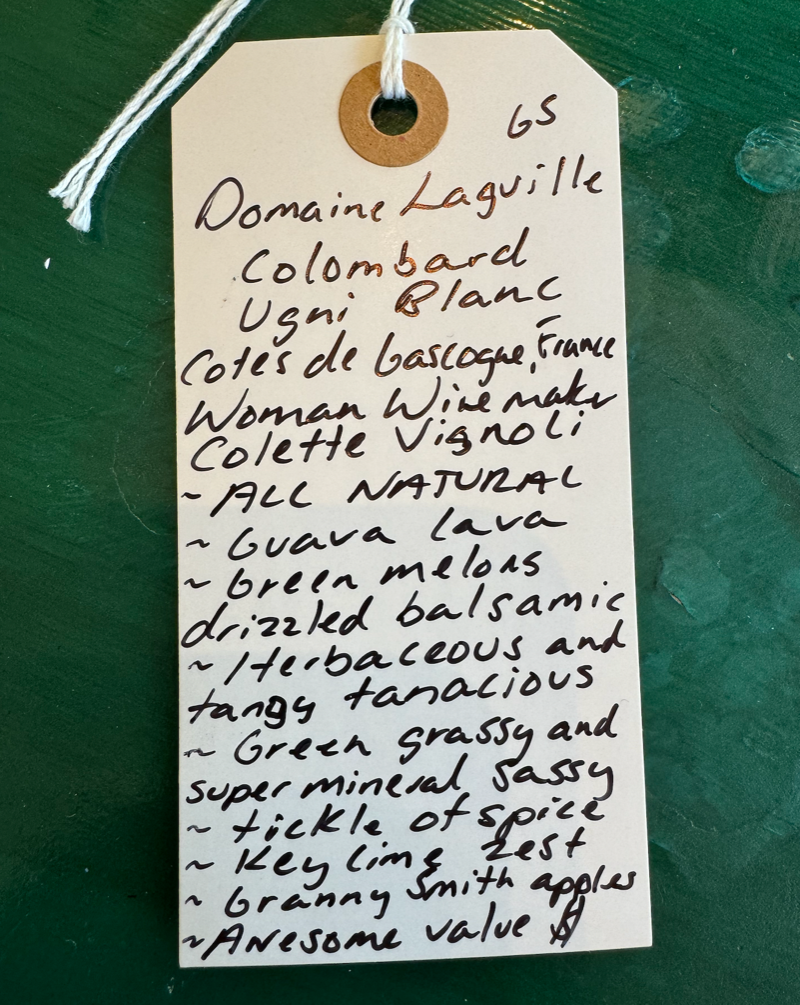 GS
Domaine Laguille
Colombard
Ugni Blanc
Cotes de Gascogne, France
Woman Winemaker
Colette Vignoli
~ ALL NATURAL
~ Guava lava
~ Green melons
drizzled balsamic
~ Herbaceous and
tangy tanacious
~ Green grassy and
super mineral sassy
~ tickle of spice
~ Key lime zest
~ Granny Smith apples
~ Awesome value $